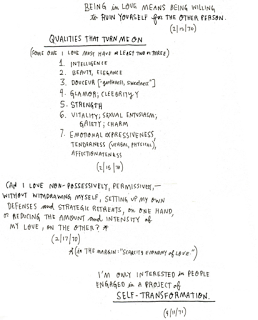 BEING in LOVE MEANS BEING WILLING
to RUIN YOURSELF for THE OTHER PERSON.
(2/10/70)
QUALITIES THAT TURN ME ON
(SOMEONE I LOVE MUST HAVE at LEAST TWO or THREE)
1. INTELLIGENCE
2. BEAUTY, ELEGANCE
3. DOUCEUR ["gentleness, sweetness"]
4. GLAMOR; CELEBRITY
5. STRENGTH
6. VITALITY; SEXUAL ENTHUSIASM;
GAIETY; CHARM
7. EMOTIONAL EXPRESSIVENESS,
TENDERNESS (VERBAL, PHYSICAL),
AFFECTIONATENESS
(2/15/70)
CAN I LOVE NON-POSSESSIVELY, PERMISSIVELY, —
WITHOUT WITHDRAWING MYSELF, SETTING UP MY OWN
DEFENSES and STRATEGIC RETREATS, on ONE HAND,
or REDUCING THE AMOUNT and INTENSITY of
MY LOVE, on THE OTHER? *
(2/17/70)
* (in THE MARGIN: "SCARCITY ECONOMY of LOVE.")
I'M ONLY INTERESTED in PEOPLE
ENGAGED in A PROJECT of
SELF-TRANSFORMATION.